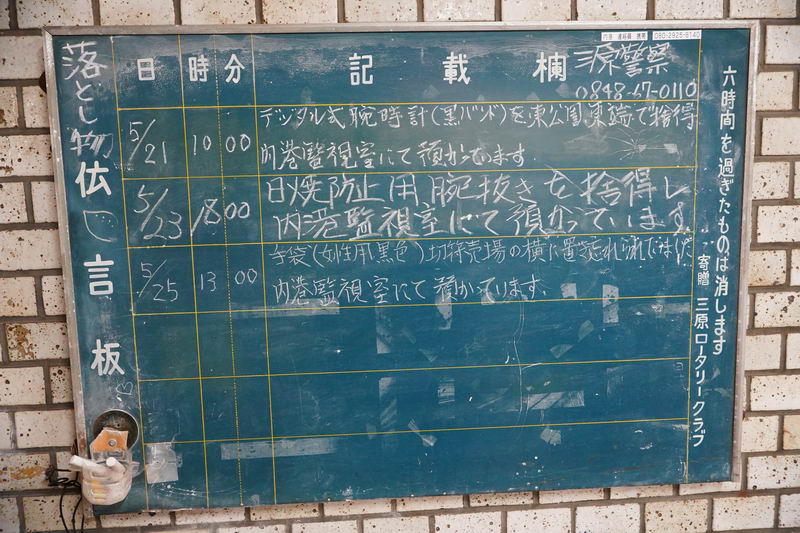 内港 連絡員 携帯 080-2925-8140
落とし物
伝言板
日 時 分 記載欄
三原警察
0848-67-0110
5/21 10 00 デジタル式腕時計(黒バンド)を東公園東端で拾得
内港監視室にて預かっています.
5/23 18 00 日焼防止用腕抜きを拾得し
内港監視室にて預かっています
5/25 13 00 手袋(女性用黒色)切符売場の横に置
内港監視室にて預かっています.
六時間を過ぎたものは消します
寄贈 三原ロータリークラブ